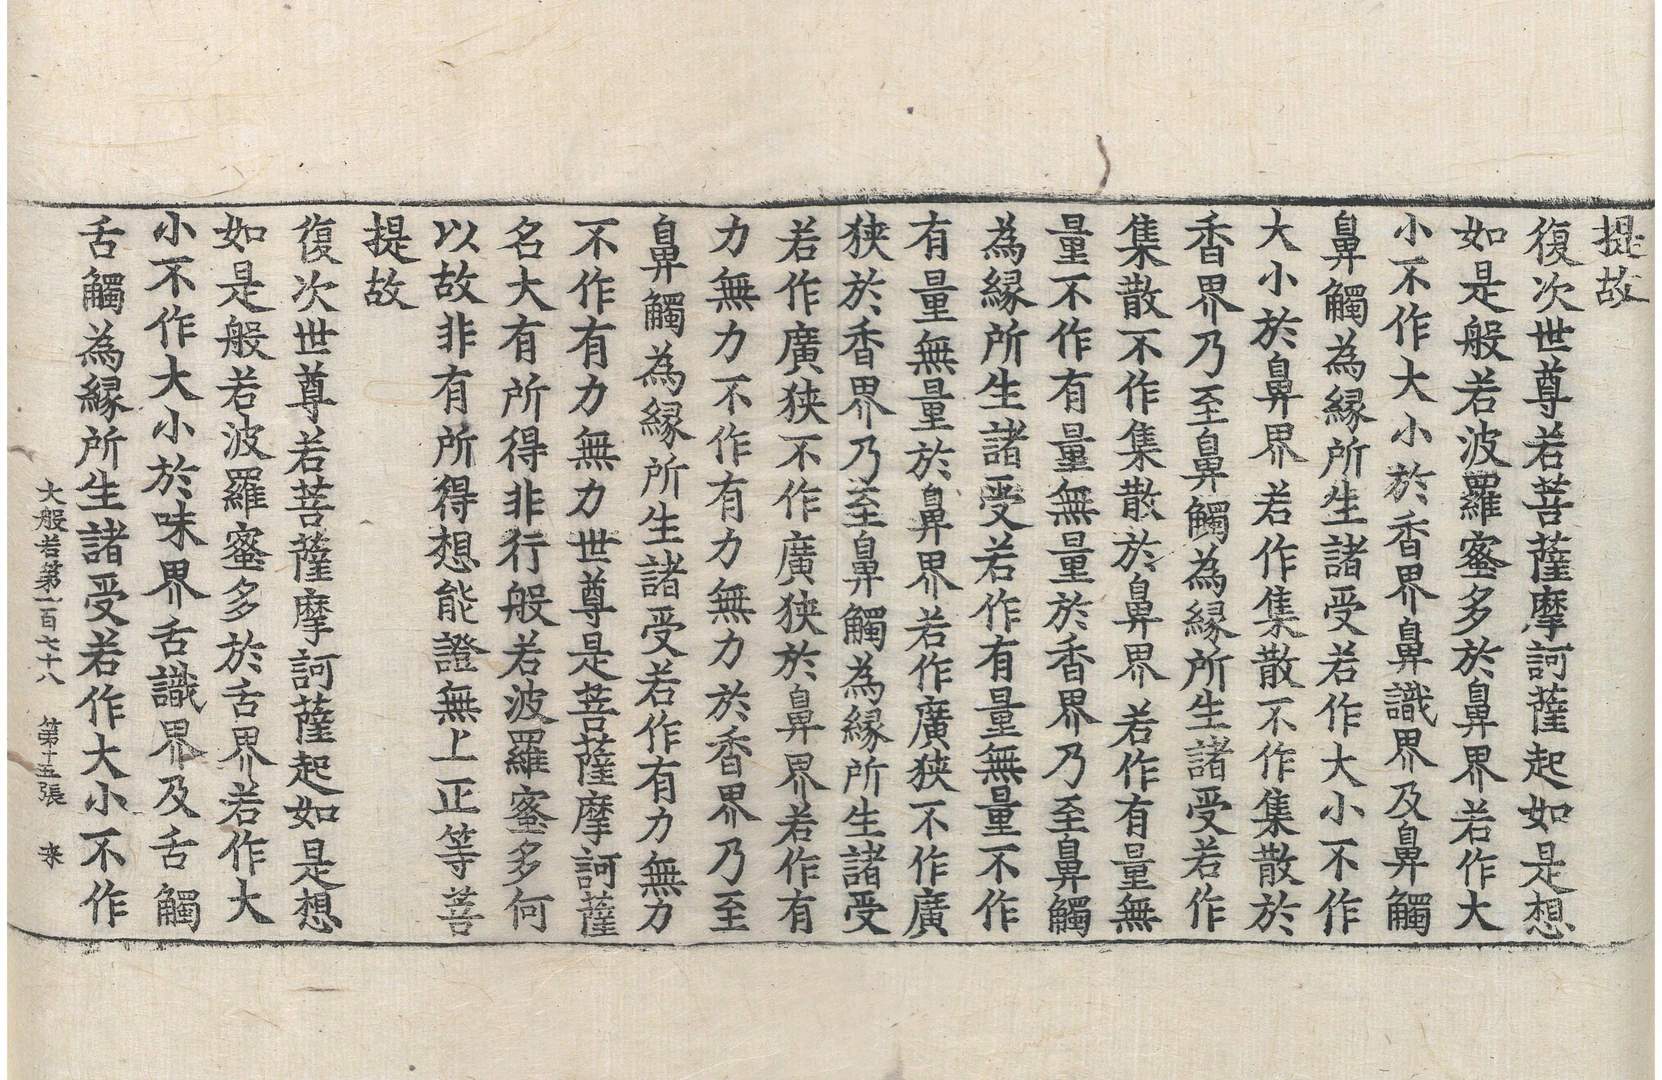 提故
復次世尊若菩薩摩訶薩起如是想
如是般若波羅蜜多於鼻界若作大
小不作大小於香界鼻識界及鼻觸
鼻觸為縁所生諸受若作大小不作
大小於鼻界若作集散不作集散於
香界乃至鼻觸為縁所生諸受若作
集散不作集散於鼻界若作有量無
量不作有量無量於香界乃至鼻觸
為縁所生諸受若作有量無量不作
有量無量於鼻界若作廣狹不作廣
狹於香界乃至鼻觸為縁所生諸受
若作廣狹不作廣狹於鼻界若作有
力無力不作有力無力於香界乃至
鼻觸為縁所生諸受若作有力無力
不作有力無力世尊是菩薩摩訶薩
名大有所得非行般若波羅蜜多何
以故非有所得想能證無上正等菩
提故
復次世尊若菩薩摩訶薩起如是想
如是般若波羅蜜多於舌界若作大
小不作大小於味界舌識界及舌觸
舌觸為縁所生諸受若作大小不作
大般若第一百七十八 第十五張 来